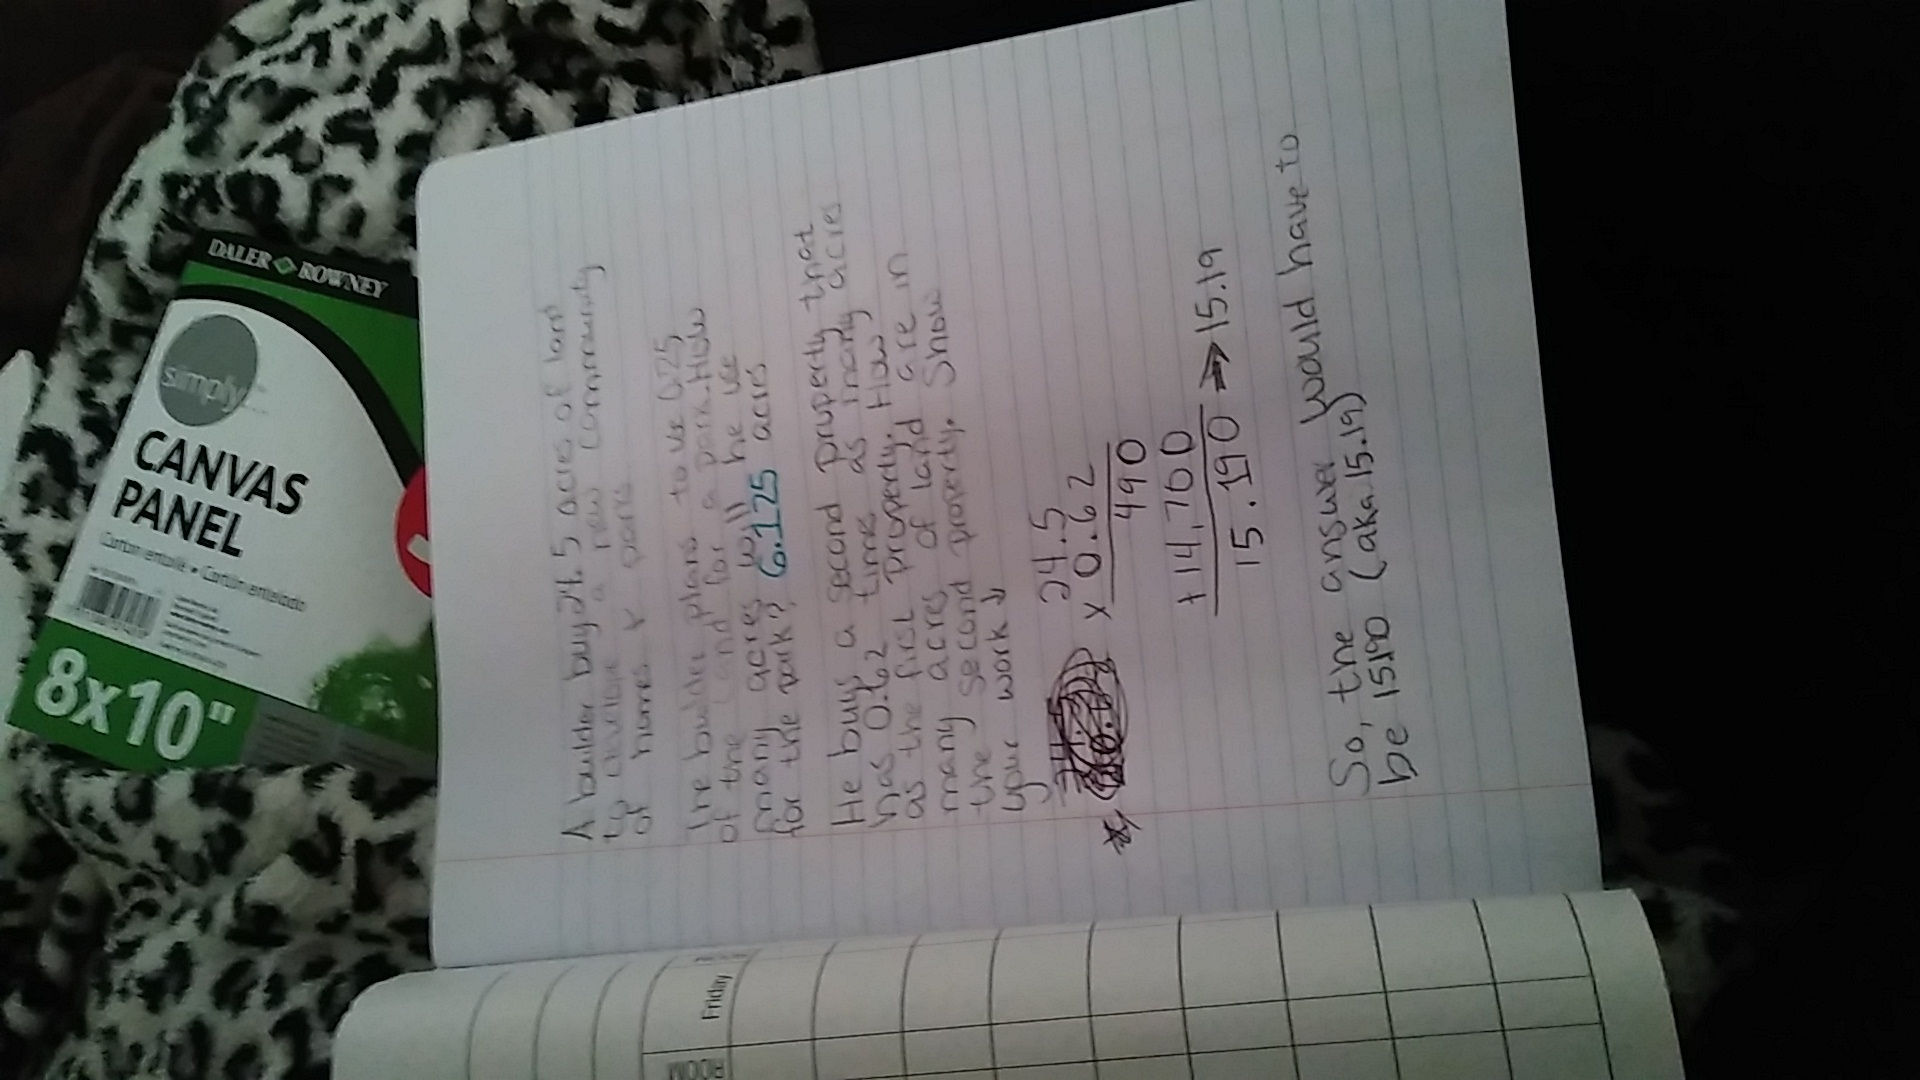 A builder buy 24.5 acres of land
to develope a new community
of homes & parks
The builder plans to us 0.25
of the land for a park. How
many acres will he use
for the park? 6.125 acres
He buys a second pruperty that
has 0.62 times as many acres
as the first pruperty. How
many acres of land are in
the second property. Show
your work↓
24.5
x 0.62
490
+14,700
15.190 → 15.19
So, the answer would have to
be 15.190 (aka 15.19)
DALER ROWNEY
simply
CANVAS
PANEL
Carton entoilé • Cartón entelado
8x10"
Friday
ROOM